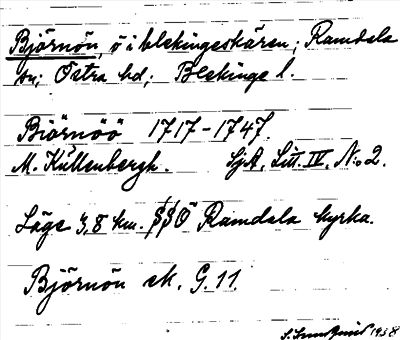 Björnön, ö i blekingeskären; Ramdala
sn; Östra hd; Blekinge l.
Biörnöö 1717-1747.
M. Kullenbergh. SjA, Litt. IV, No 2.
Läge 3,8 km. SSÖ Ramdala kyrka.
Björnön ek. G. 11.
1938